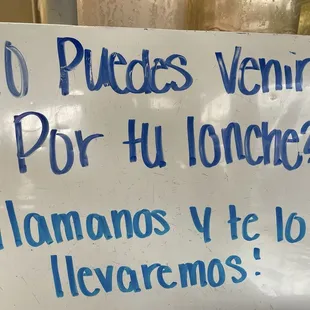 Puedes venir
Por tu lonche?
llamanos y te lo
llevaremos!